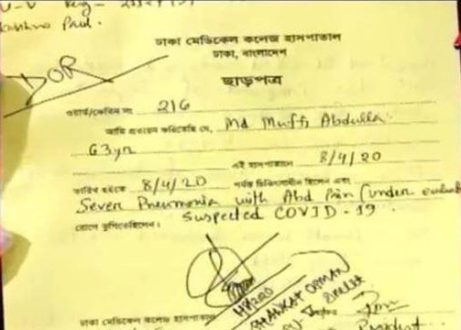 ঢাকা মেডিকেল কলেজ হাসপাতাল
ঢাকা, বাংলাদেশ
DOR
ছাড়পত্র
ওয়ার্ড/কেবিন নং 216
আমি প্রত্যয়ন করিতেছি যে, Md Mufti Abdulla
63yr
এই হাসপাতালে 8/4/20
তারিখ হইতে 8/4/20 পর্যন্ত চিকিৎসাধীন ছিলেন এবং
Sever Pneumonia with Abd Pain (under
suspected COVID-19.
রোগে ভুগিতেছিলেন।
SHAIKAT OSMAN
ঢাকা মেডিকেল কলেজ হাসপাতাল